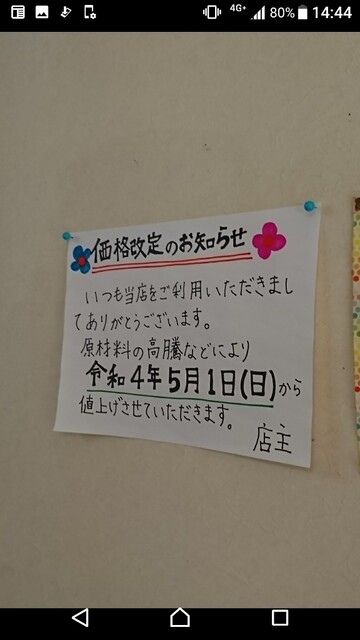 4G+ 80% 14:44
価格改定のお知らせ
いつも当店をご利用いただきまし
てありがとうございます。
原材料の高騰などにより
令和4年5月1日(日)から
値上げさせていただきます。
店主